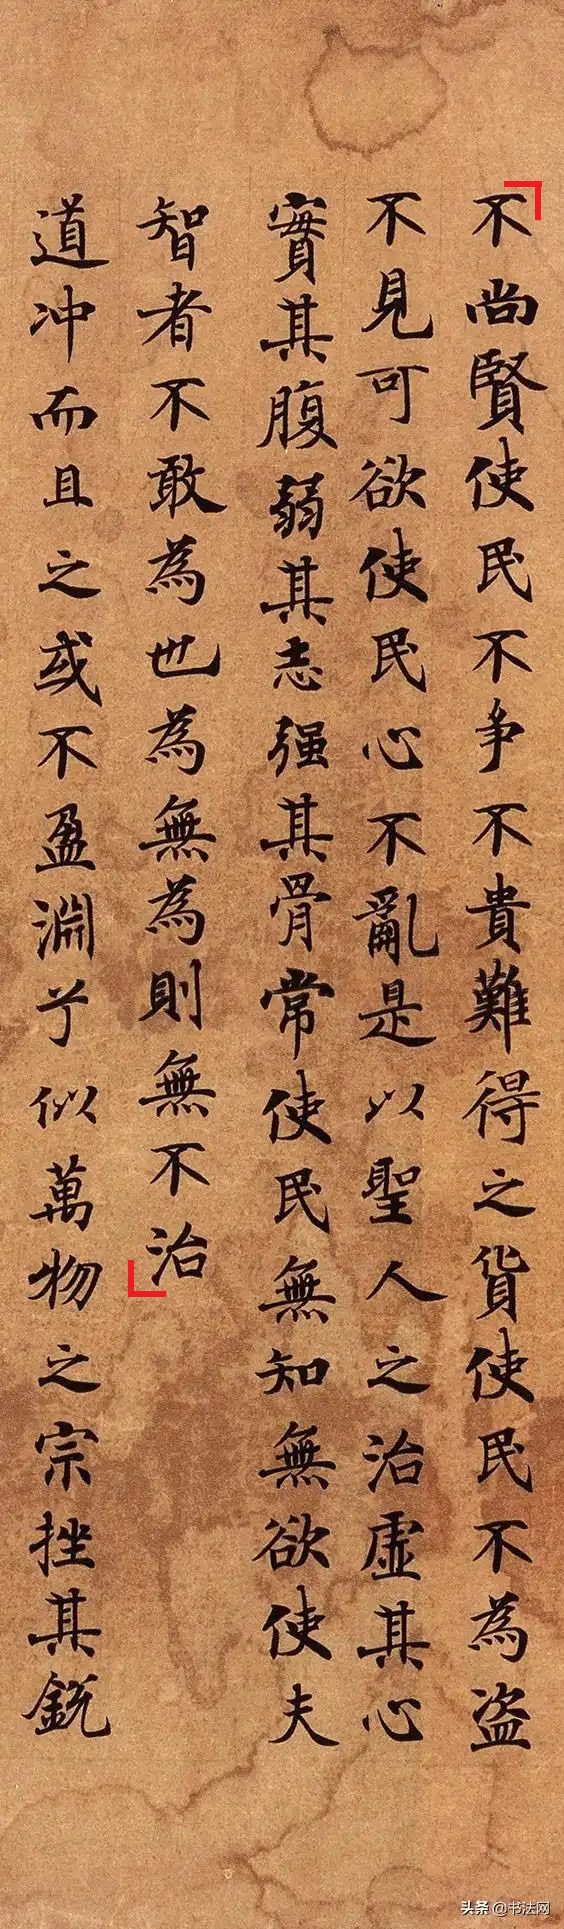 不尚賢使民不争不貴難得之貨使民不為盗
不見可欲使民心不亂是以聖人之治虚其心
實其腹弱其志强其骨常使民無知無欲使夫
智者不敢為也為無為則無不治
道冲而且之或不盈淵乎似萬物之宗挫其銳
头条 @书法网